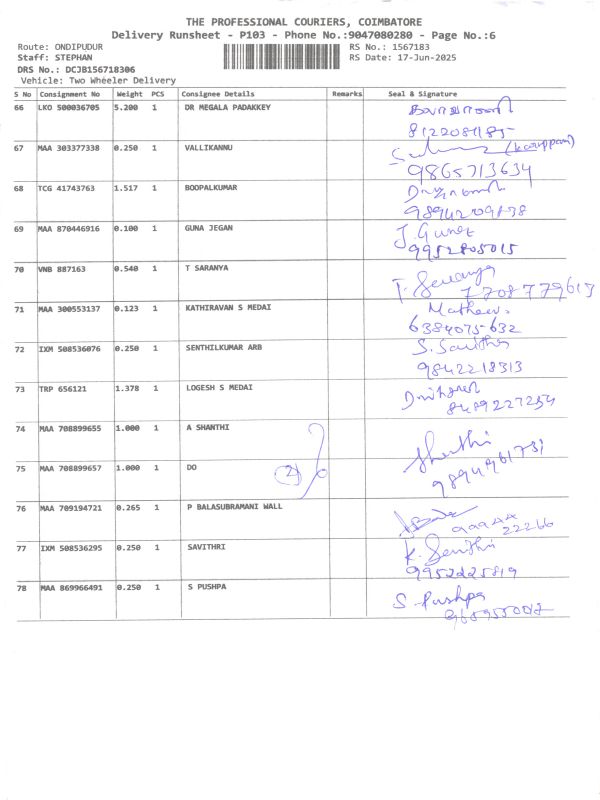 THE PROFESSIONAL COURIERS, COIMBATORE
Delivery Runsheet - P103 - Phone No.:9047080280 - Page No.:6
Route: ONDIPUDUR RS No.: 1567183
Staff: STEPHAN RS Date: 17-Jun-2025
DRS No.: DCJB156718306
Vehicle: Two Wheeler Delivery
S No Consignment No Weight PCS Consignee Details Remarks Seal & Signature
66 LKO 500036705 5.200 1 DR MEGALA PADAKKEY
67 MAA 303377338 0.250 1 VALLIKANNU (Karuppan)
9865713634
68 TCG 41743763 1.517 1 BOOPALKUMAR
69 MAA 870446916 0.100 1 GUNA JEGAN J. Guna
9952805015
70 VNB 887163 0.540 1 T SARANYA T. Saranya
7708779613
71 MAA 300553137 0.123 1 KATHIRAVAN S MEDAI
6384075632
72 IXM 508536076 0.250 1 SENTHILKUMAR ARB S. Savitha
9842218313
73 TRP 656121 1.378 1 LOGESH S MEDAI
8489227254
74 MAA 708899655 1.000 1 A SHANTHI Shanthi
9894961731
75 MAA 708899657 1.000 1 DO 2)
76 MAA 709194721 0.265 1 P BALASUBRAMANI WALL
99944 22266
77 IXM 508536295 0.250 1 SAVITHRI
9952225819
78 MAA 869966491 0.250 1 S PUSHPA S. Pushpa